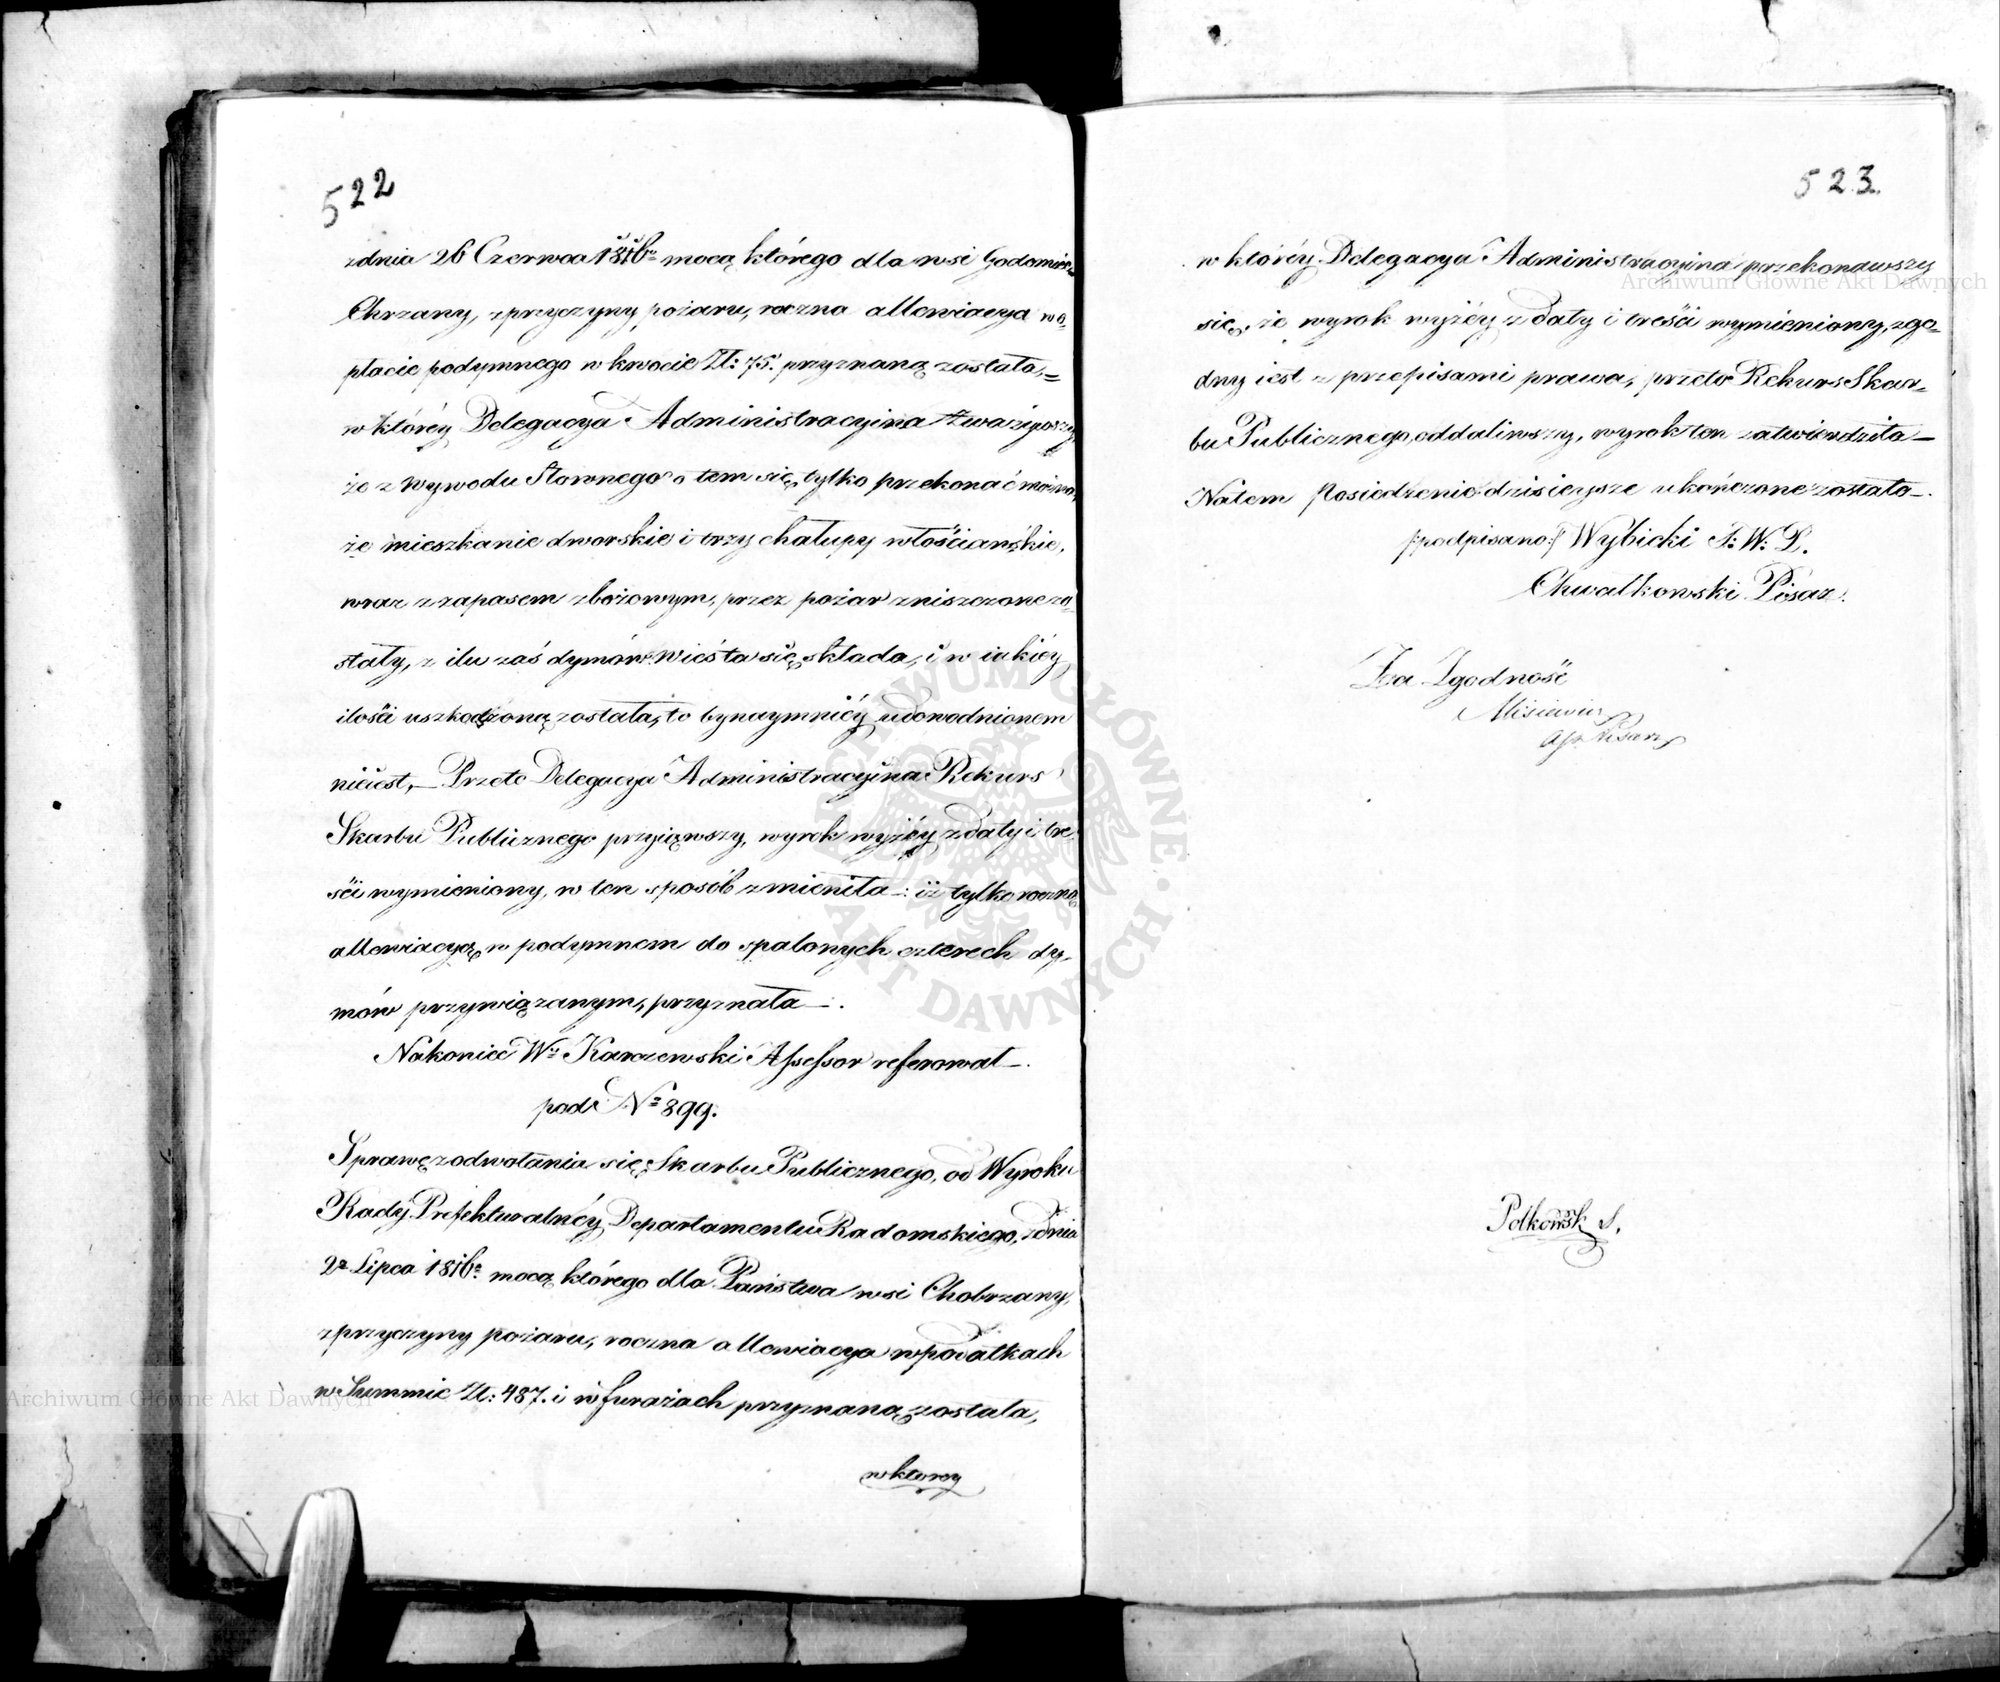 522
zdnia 26 Czerwca 1816º mocą którego dla wsi
Chrzany, zprzyczyny pożaru, roczna allewiacya wo-
płacie podymnego w kwocie Zł: 75. przyznaną została,=
w któréy Delegacya Administracyina zważywszy
że z Wywodu Słownego o tem się tylko przekonać można,
że mieszkanie dworskie i trzy chałupy włościańskie,
wraz z zapasem zbożowym, przez pożar zniszczone zo-
stały, z ilu zaś dymów wieś ta się składa, i w iakiéy
ilości uszkodzoną została, to bynaymniéy udowodnionem
nieiest, — Przeto Delegacya Administracyina Rekurs
Skarbu Publicznego przyiąwszy, wyrok wyżéy z daty i tre-
ści wymieniony, w ten sposób zmieniła —: iż tylko roczną
allewiacyą w podymnem do spalonych czterech dy-
mów przywiązanym, przyznała —.
Nakoniec Wy Karczewski Assessor referował —.
pod Nº 899.
Sprawę z odwołania się Skarbu Publicznego, od Wyroku
Rady Prefekturalnéy Departamentu Radomskiego, zdnia
2º Lipca 1816º mocą którego dla Państwa wsi Chobrzany,
zprzyczyny pożaru, roczna allewiacya wpodatkach
w Summie Zł: 487. i w furażach przyznaną została,
wktorey
523.
w któréy Delegacya Administracyina przekonawszy
się, że wyrok wyżéy z daty i treści wymieniony, zgo-
dny iest z przepisami prawa, przeto Rekurs Skar-
bu Publicznego oddaliwszy, wyrok ten zatwierdziła —
Natem Posiedzenie dzisieysze ukończone zostało —.
/:podpisano:/ Wybicki S: W: P.
Chwalkowski Pisarz.
Za Zgodność
Pisarz
Polkowsk S.
Archiwum Główne Akt Dawnych
Archiwum Główne Akt Dawnych
ARCHIWUM GŁÓWNE · AKT DAWNYCH ·